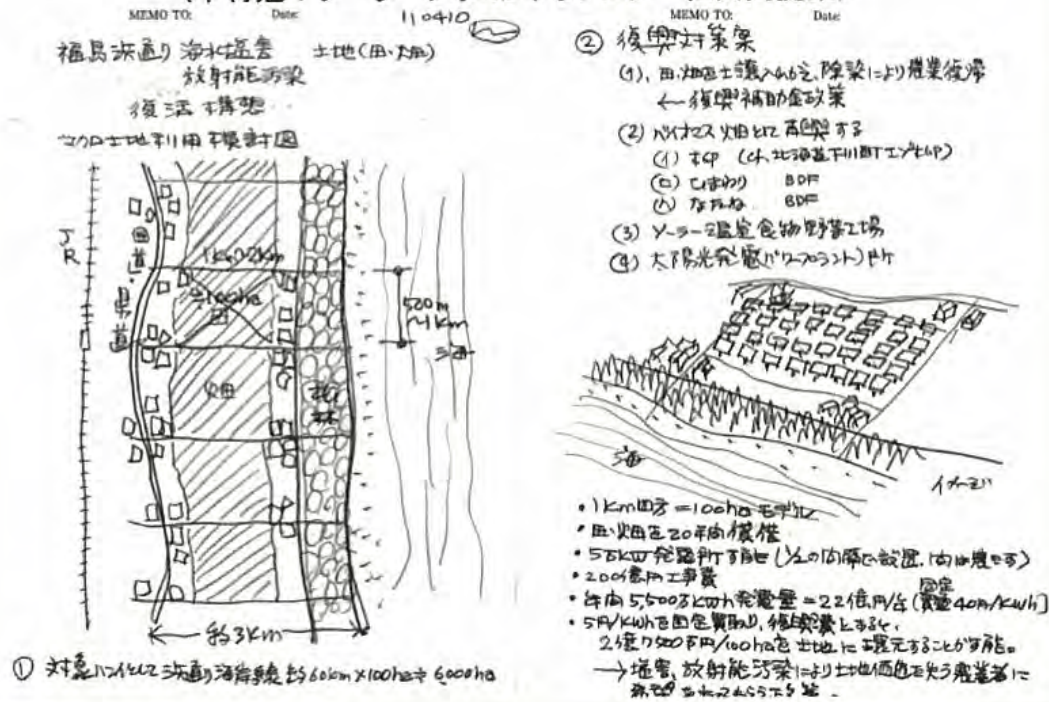 MEMO TO: Date:
110410
福島浜通り 海水塩害 土地(田・畑)
放射能汚染
復活構想
マクロ土地利用検討図
JR
国道
県道
1km~2km
≒100ha
田
畑
林
500m
~1km
海
約3km
① 対象 浜通り海岸線 約60km×100ha≒6000ha
MEMO TO: Date:
② 復興対策案
(1). 田・畑 土壌入れ替え、除染により農業復帰
← 復興補助金政策
(2) バイオマス畑として再興する
(イ) 北海道下川町
(ロ) ひまわり BDF
(ハ) なたね BDF
(3) ソーラー 温室食物野菜工場
(4) 太陽光発電(パワープラント)
海
イメージ
・1km四方=100haモデル
・田・畑を20年間借
・5万kW発電所可能(1/2の間隔で設置、)
・200億円工事費
・年間5,500万kWh発電量=22億円/年(固定買取40円/kWh)
・5円/kWhを固定買取り、復興費とすると、
2億7500万円/100haを土地に還元することが可能。
→塩害、放射能汚染により土地価値を失う農業者に